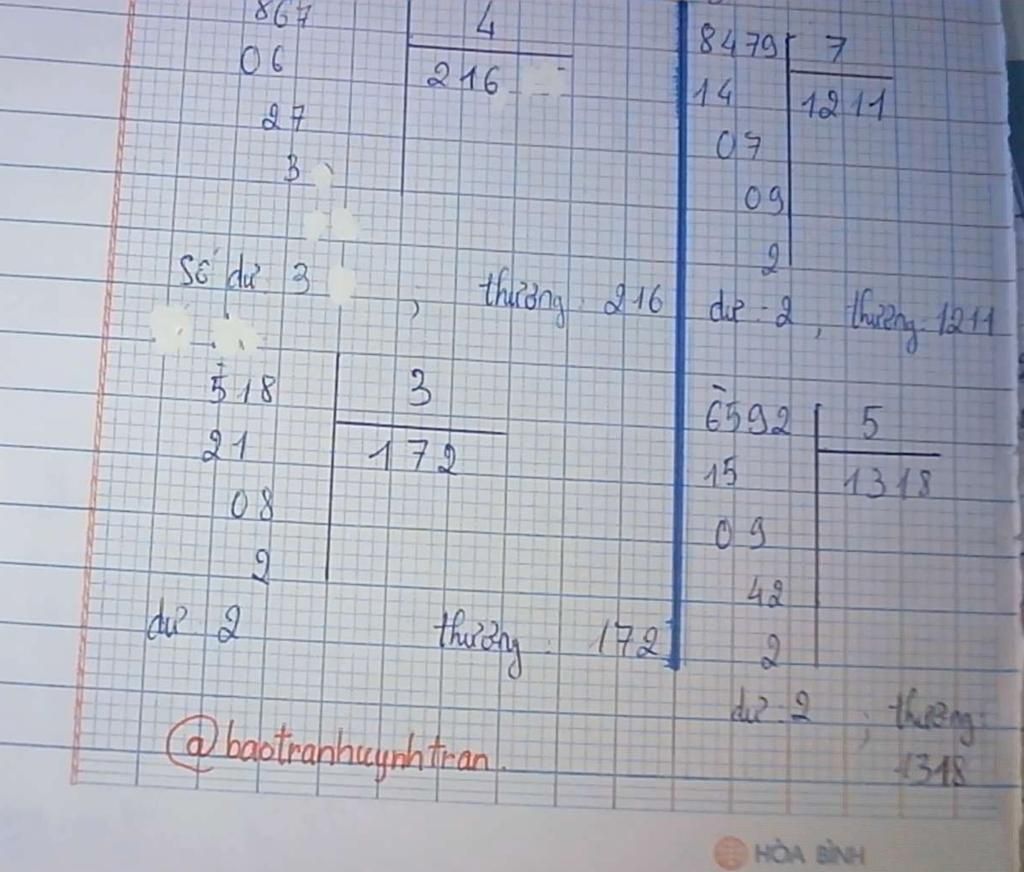 867 4
06 216
27
3
Số dư 3 ; thương : 216
518 3
21 172
08
2
dư 2 thương : 172
8479 7
14 1211
07
09
2
dư : 2 , thương : 1211
6592 5
15 1318
09
42
2
dư : 2 ; thương :
1318
@baotranhuynhtran.
HÒA BÌNH